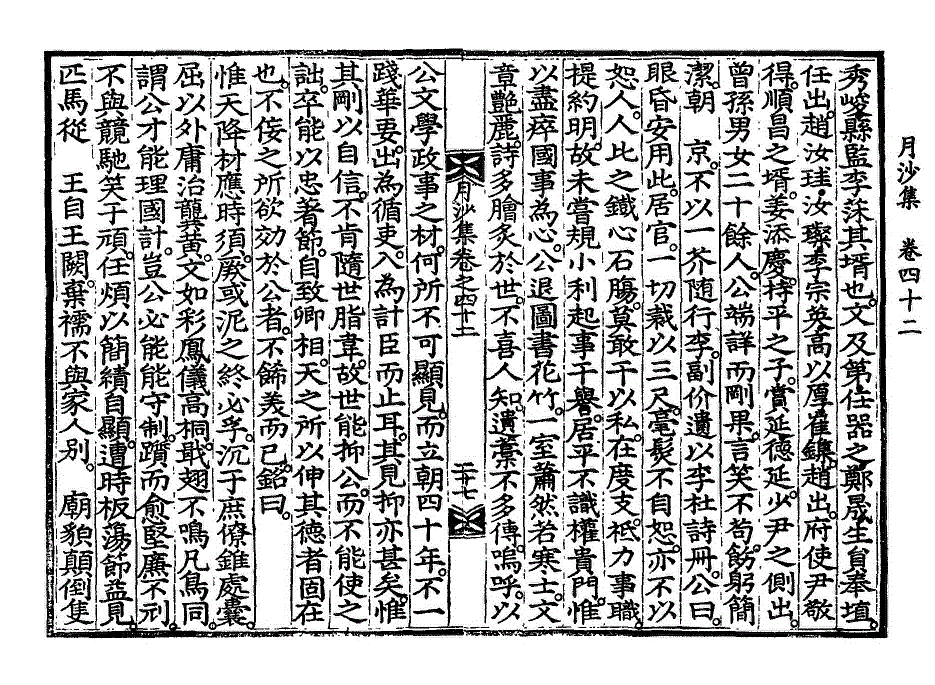 月沙集 卷四十二
秀峻縣監李莯其壻也文及第任器之鄭晟生員奉塡
任出趙汝瑾汝璨李宗英高以厚崔鑲趙出府使尹敬
得順昌之壻姜添慶持平之子賞延德延少尹之側出
曾孫男女二十餘人公端詳而剛果言笑不苟飭躬簡
潔朝 京不以一芥随行李副价遺以李杜詩冊公曰
眼昏安用此居官一切裁以三尺毫髮不自恕亦不以
恕人人比之鐵心石腸莫敢干以私在度支祗力事職
提約明故未嘗規小利起事干譽居平不識權貴門惟
以盡瘁國事爲心公退圖書花竹一室蕭然若寒士文
章艶麗詩多膾炙於世不喜人知遺藁不多傳嗚呼以
月沙集卷之四十二
二十七
公文學政事之材何所不可顯見而立朝四十年不一
踐華要出為循吏入為計臣而止耳其見抑亦甚矣惟
其剛以自信不肯隨世脂韋故世能抑公而不能使之
詘卒能以忠著節自致卿相天之所以伸其德者固在
也不侫之所欲効於公者不飾美而已銘曰
惟天降材應時須厥或泥之終必孚沉于庶僚錐處囊
屈以外庸治龔黃文如彩鳳儀高桐戢翅不鳴凡鳥同
謂公才能理國計豈公必能能守制躓而愈堅廉不刓
不與競馳笑子頑任煩以簡績自顯遭時板蕩節益見
匹馬從 王自王闕棄襦不與家人別 廟貌顚倒隻